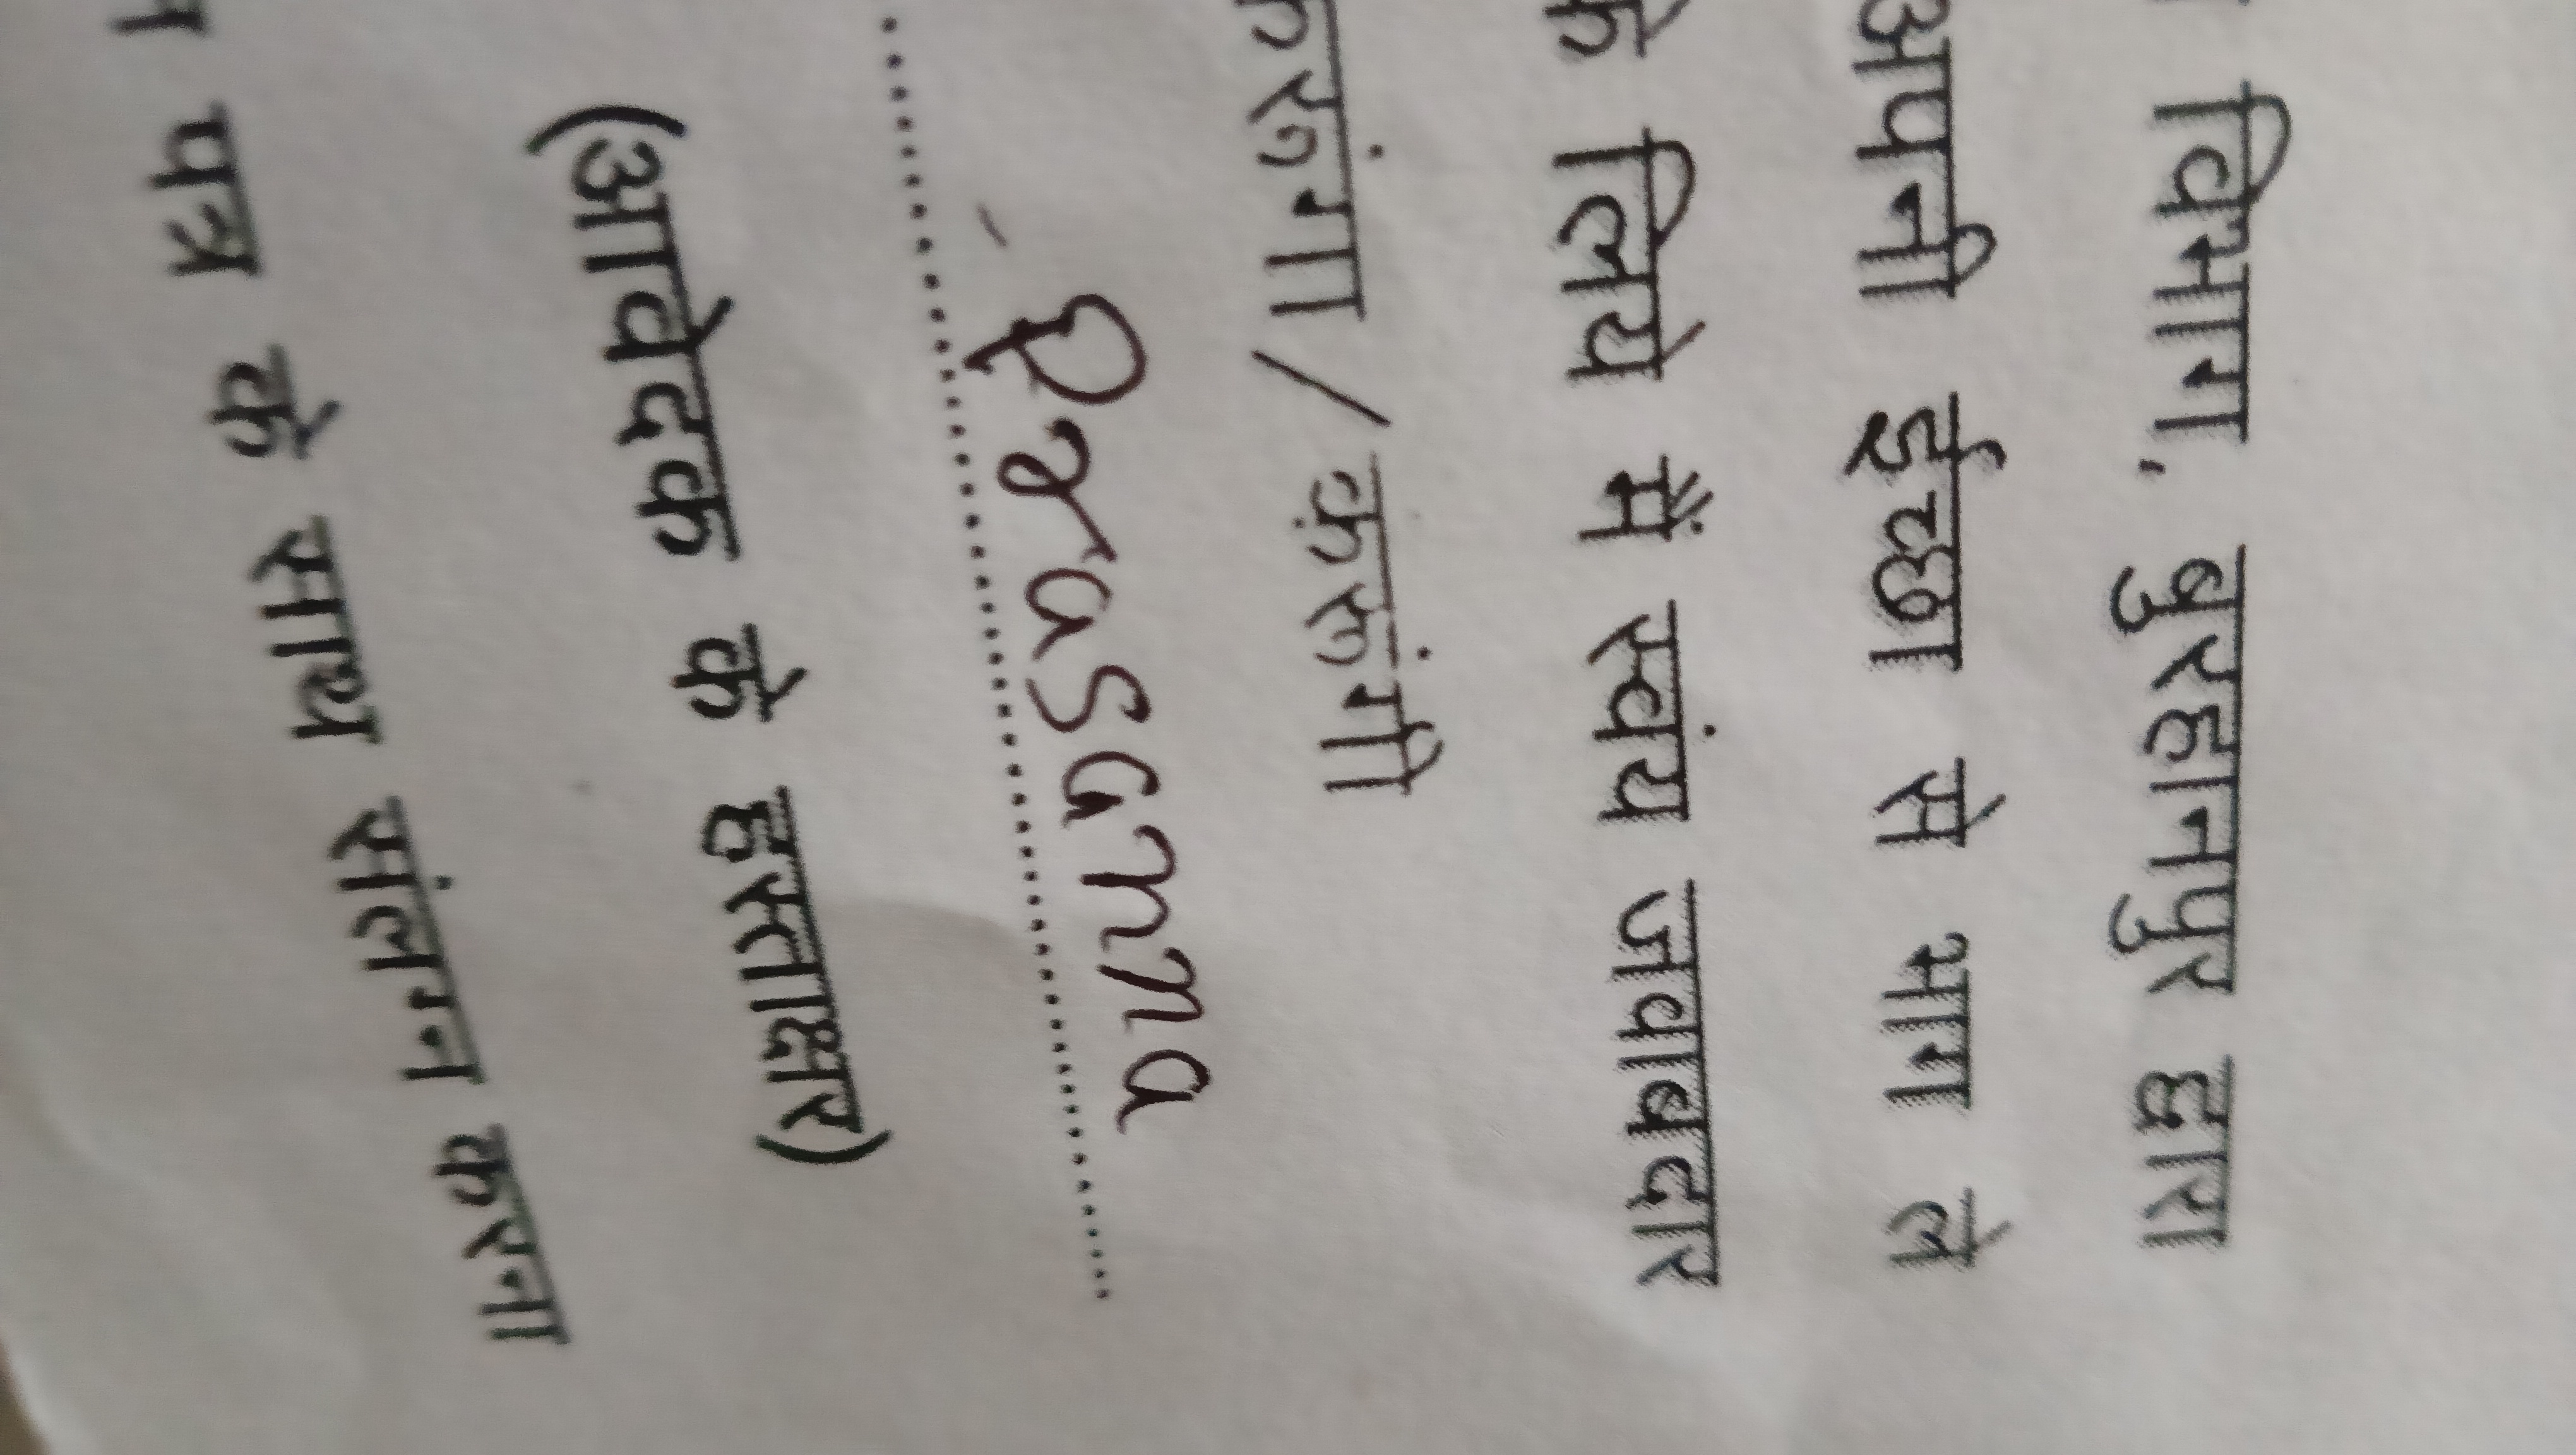 विभाग, बुरहानपुर द्वारा
अपनी ईच्छा से भाग ले
के लिये मैं स्वंय जवाबदार
करूंगा / करूंगी
Prasanna
(आवेदक के हस्ताक्षार)
पत्र के साथ संलग्न करना